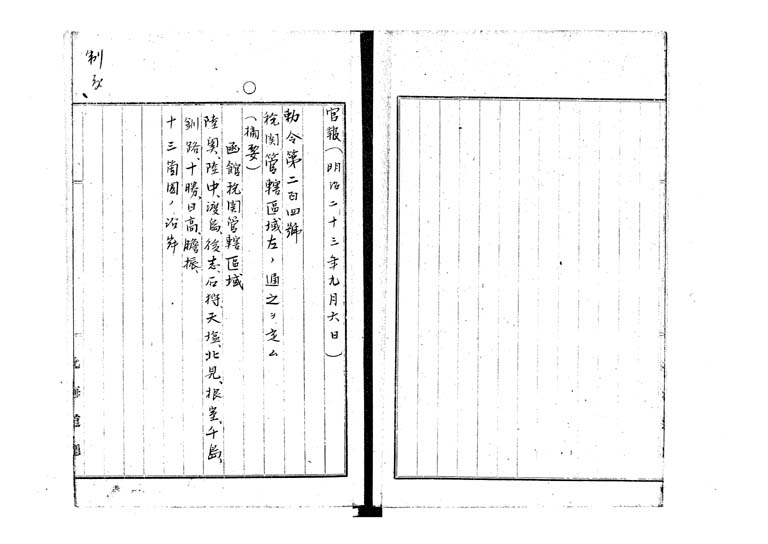 官報(明治二十三年九月六日)
勅令第二百四號
税関管轄區域左ノ通之ヲ定ム
(摘要)
函館税関管轄區域
陸奥、陸中、渡島、後志、石狩、天塩、北見、根室、千島、
釧路、十勝、日高、膽振、
十三箇國ノ沿岸